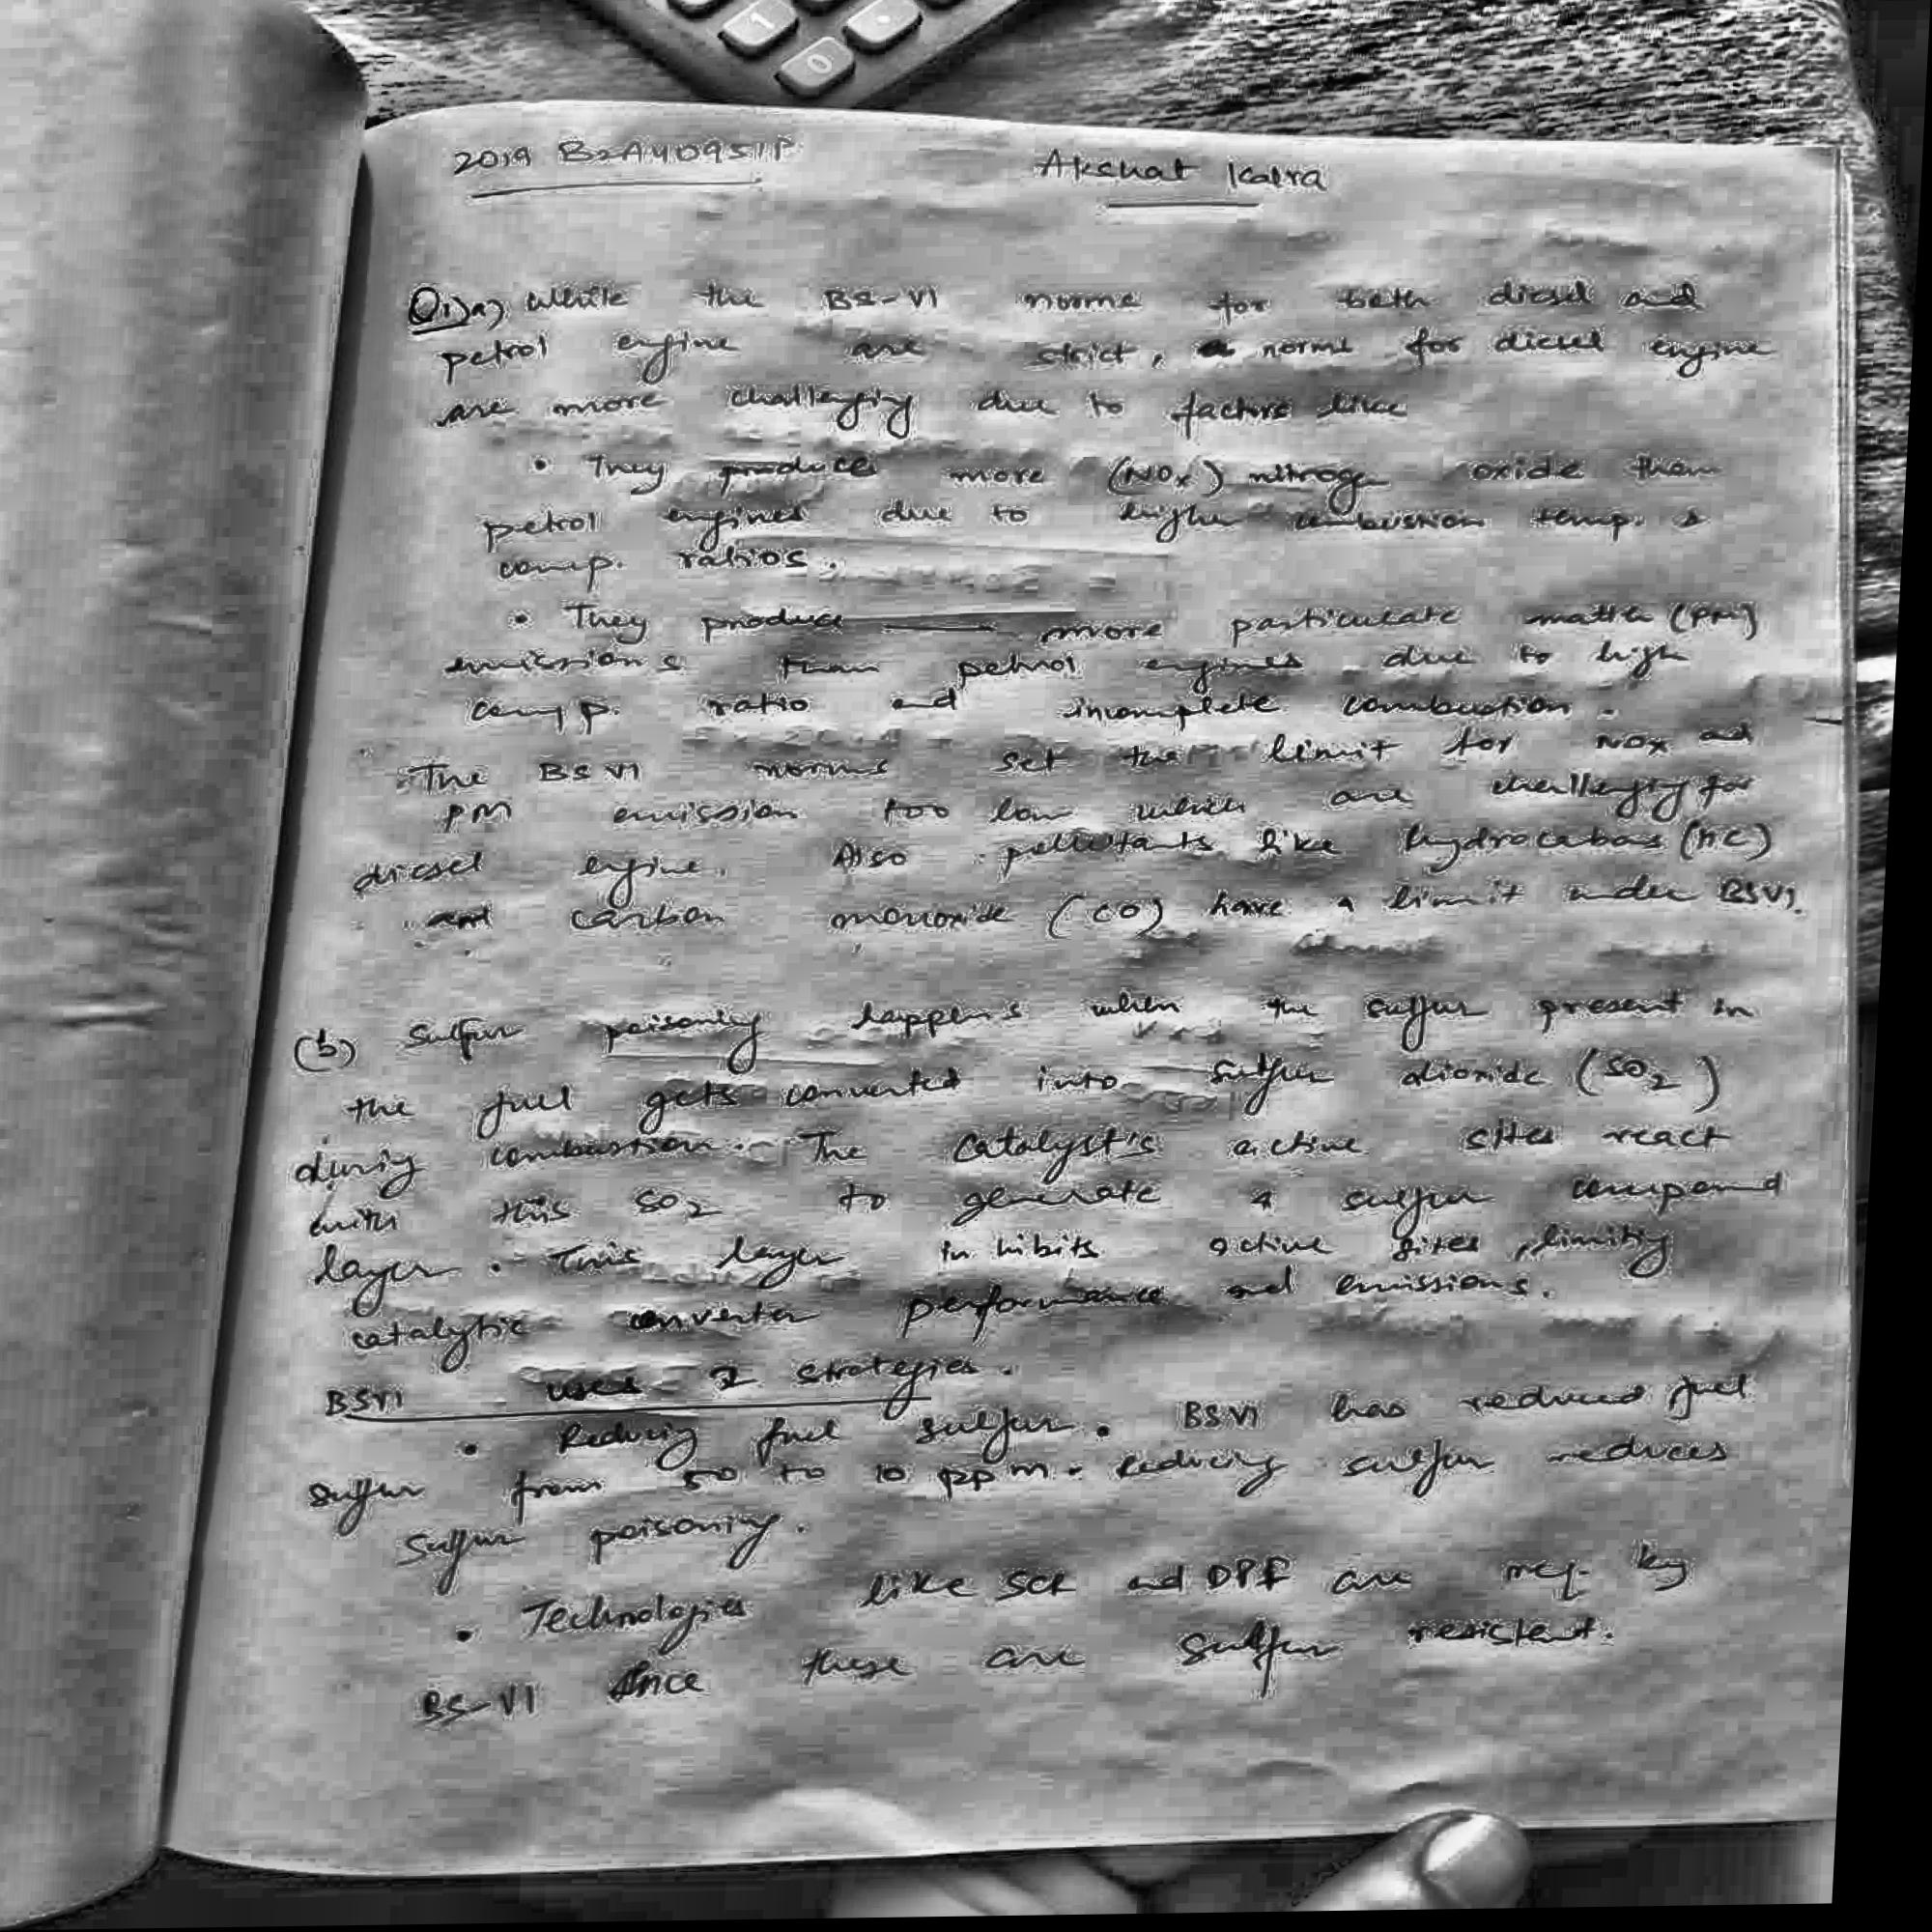 1
0
2019 B2A40951P
Akshat Kalra
Q1)a) While the BS-VI norms for both diesel and
petrol engine are strict, norms for diesel engine
are more challenging due to factors like
• They produce more (NOx) nitrogen oxide than
petrol engines due to higher combustion temp. &
comp. ratios.
• They produce more particulate matter (PM)
emissions than petrol engines due to high
comp. ratio and incomplete combustion.
The BS VI norms set the limit for NOx and
PM emission too low which are challenging for
diesel engine. Also pollutants like hydrocarbons (HC)
and carbon monoxide (CO) have a limit under BSVI.
(b) Sulfur poisoning happens when the sulfur present in
the fuel gets converted into sulfur dioxide (SO2)
during combustion. The catalyst's active sites react
with this SO2 to generate a sulfur compound
layer. This layer inhibits active sites, limiting
catalytic converter performance and emissions.
BSVI uses 2 strategies.
• Reducing fuel sulfur. BSVI has reduced fuel
sulfur from 50 to 10 ppm. Reducing sulfur reduces
sulfur poisoning.
• Technologies like SCR and DPF are req. by
BS-VI since these are sulfur resistant.